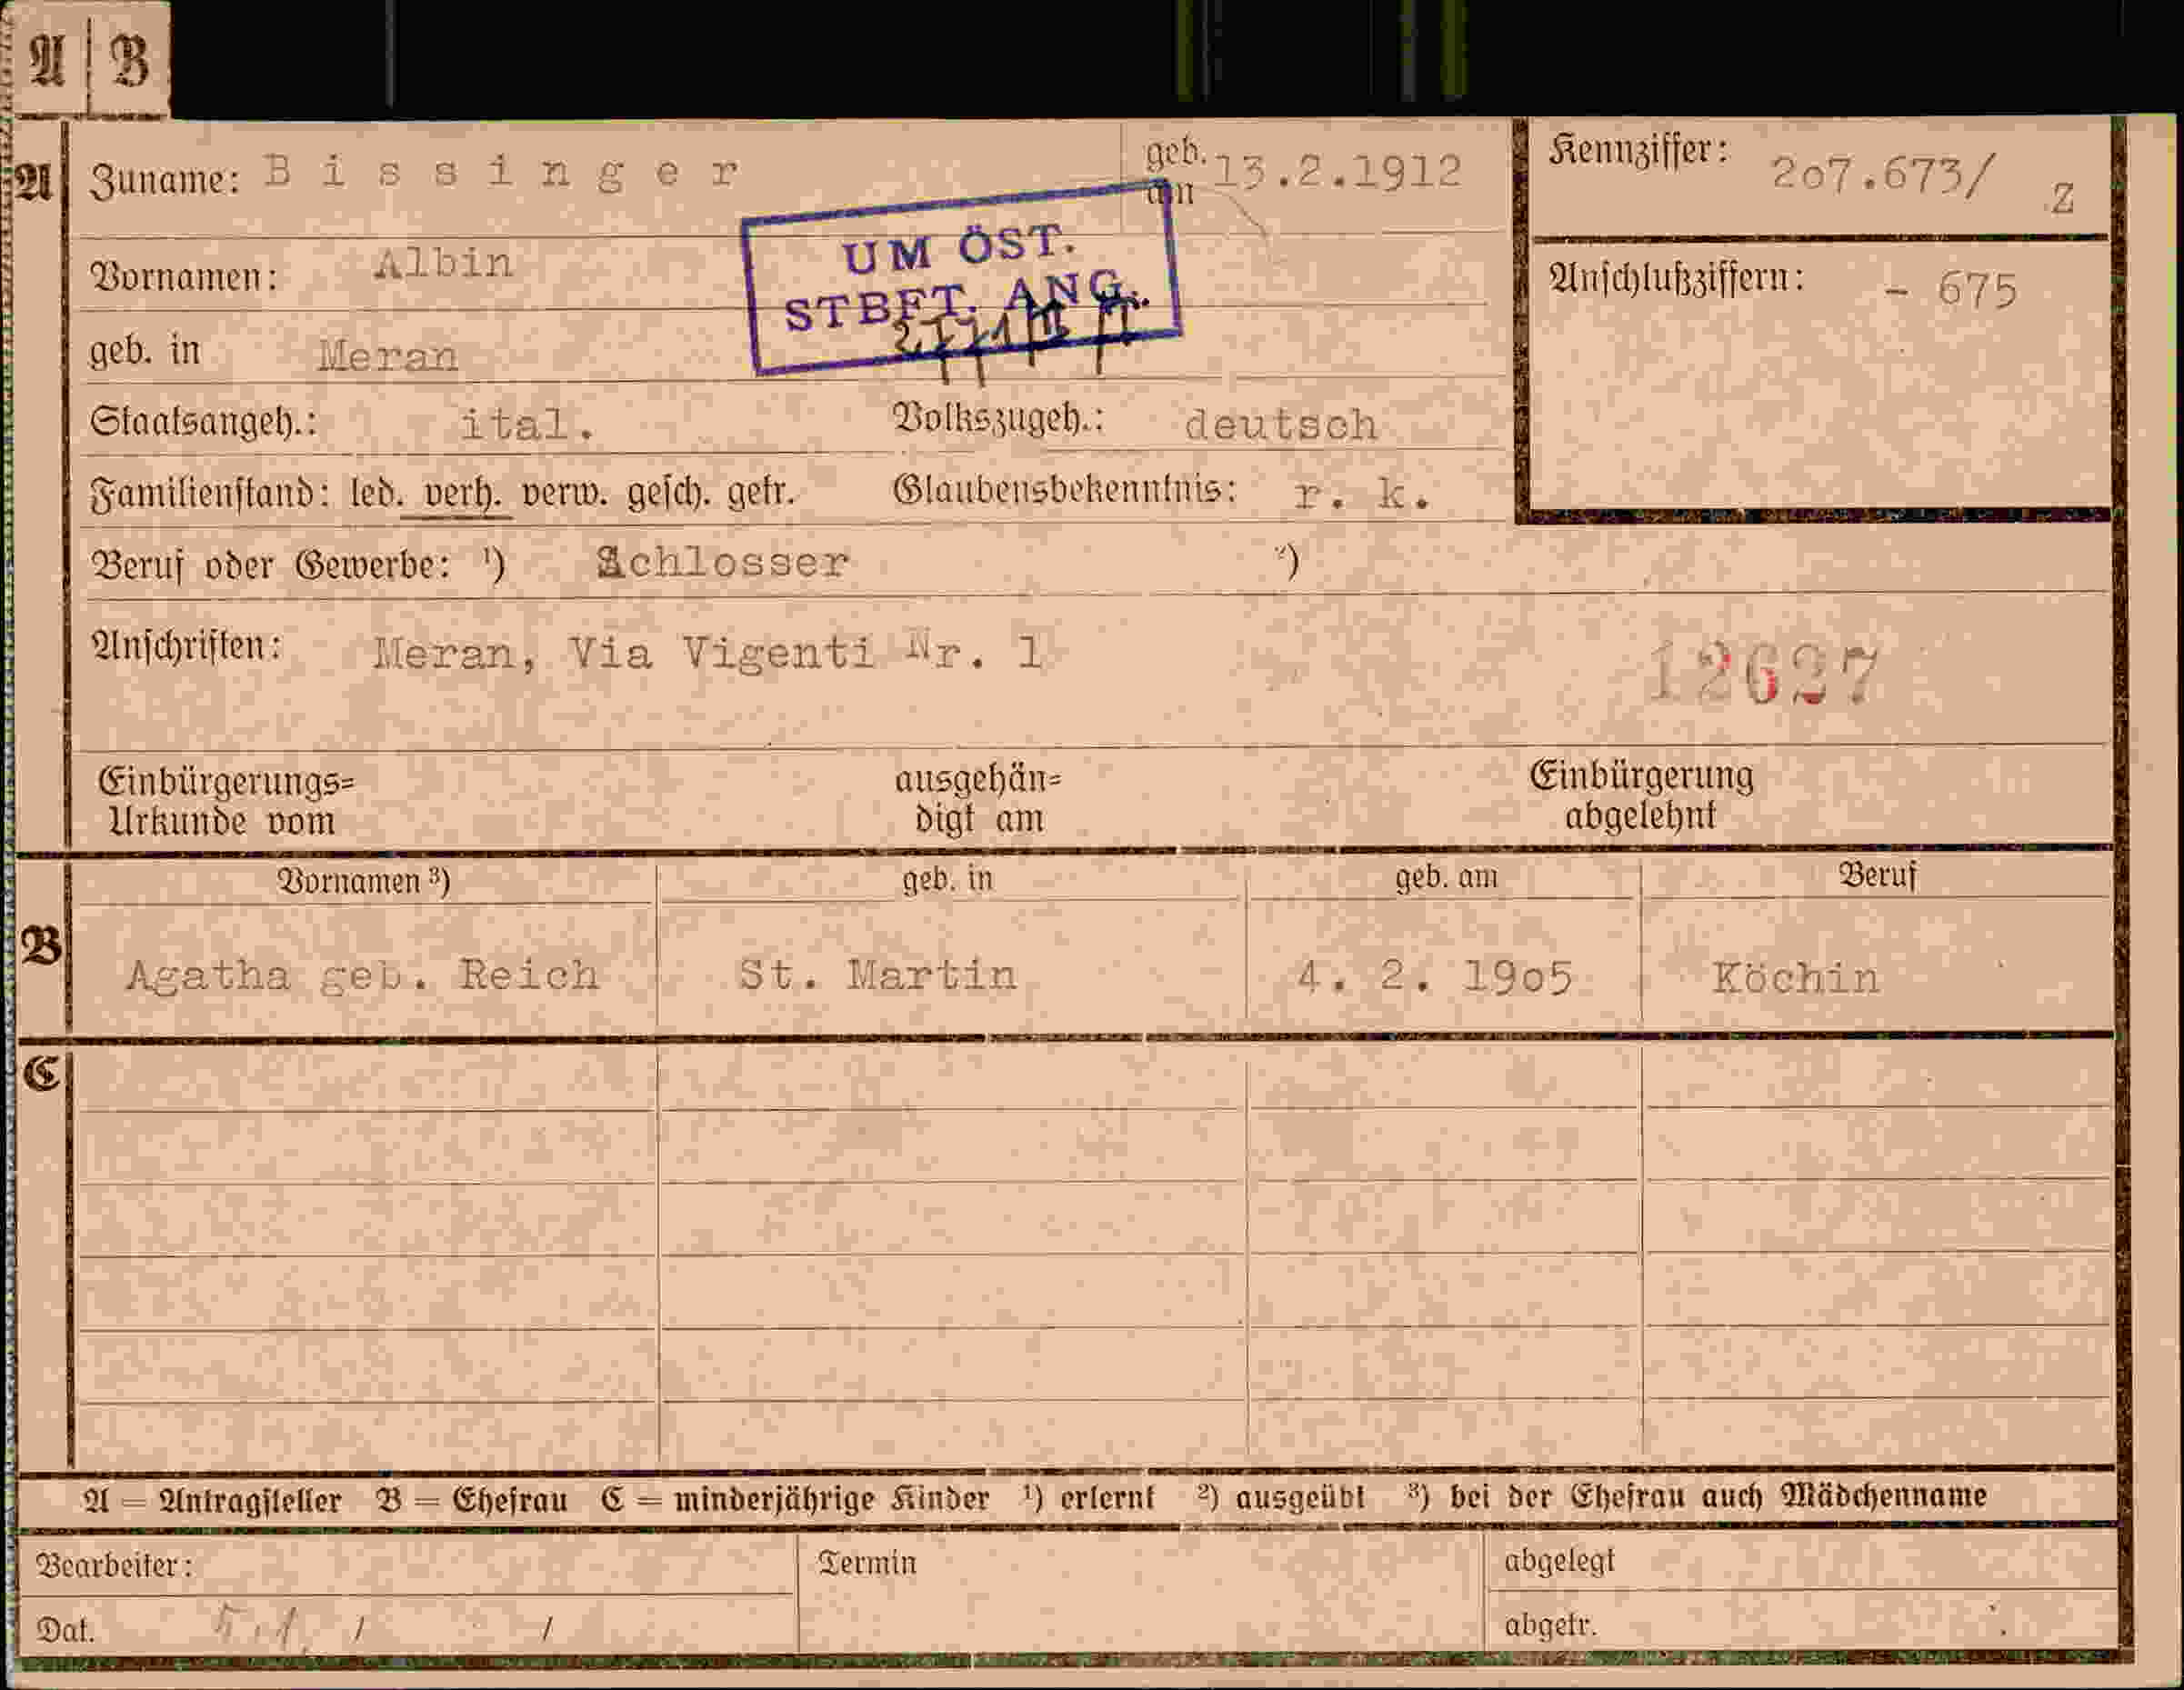 A | B
A Zuname: Bissinger geb. am 13.2.1912 Kennziffer: 2o7.673/ Z
UM ÖST.
STBFT. ANG.
Vornamen: Albin Anschlußziffern: - 675
geb. in Meran
Staatsangeh.: ital. Volkszugeh.: deutsch
Familienstand: led. verh. verw. gesch. getr. Glaubensbekenntnis: r. k.
Beruf oder Gewerbe: ¹) Schlosser ²)
Anschriften: Meran, Via Vigenti Nr. 1
12627
Einbürgerungs= ausgehän= Einbürgerung
Urkunde vom digt am abgelehnt
Vornamen ³) geb. in geb. am Beruf
B Agatha geb. Reich St. Martin 4. 2. 19o5 Köchin
C
A = Antragsteller B = Ehefrau C = minderjährige Kinder ¹) erlernt ²) ausgeübt ³) bei der Ehefrau auch Mädchenname
Bearbeiter: Termin abgelegt
Dat. 5.1. / / abgetr.